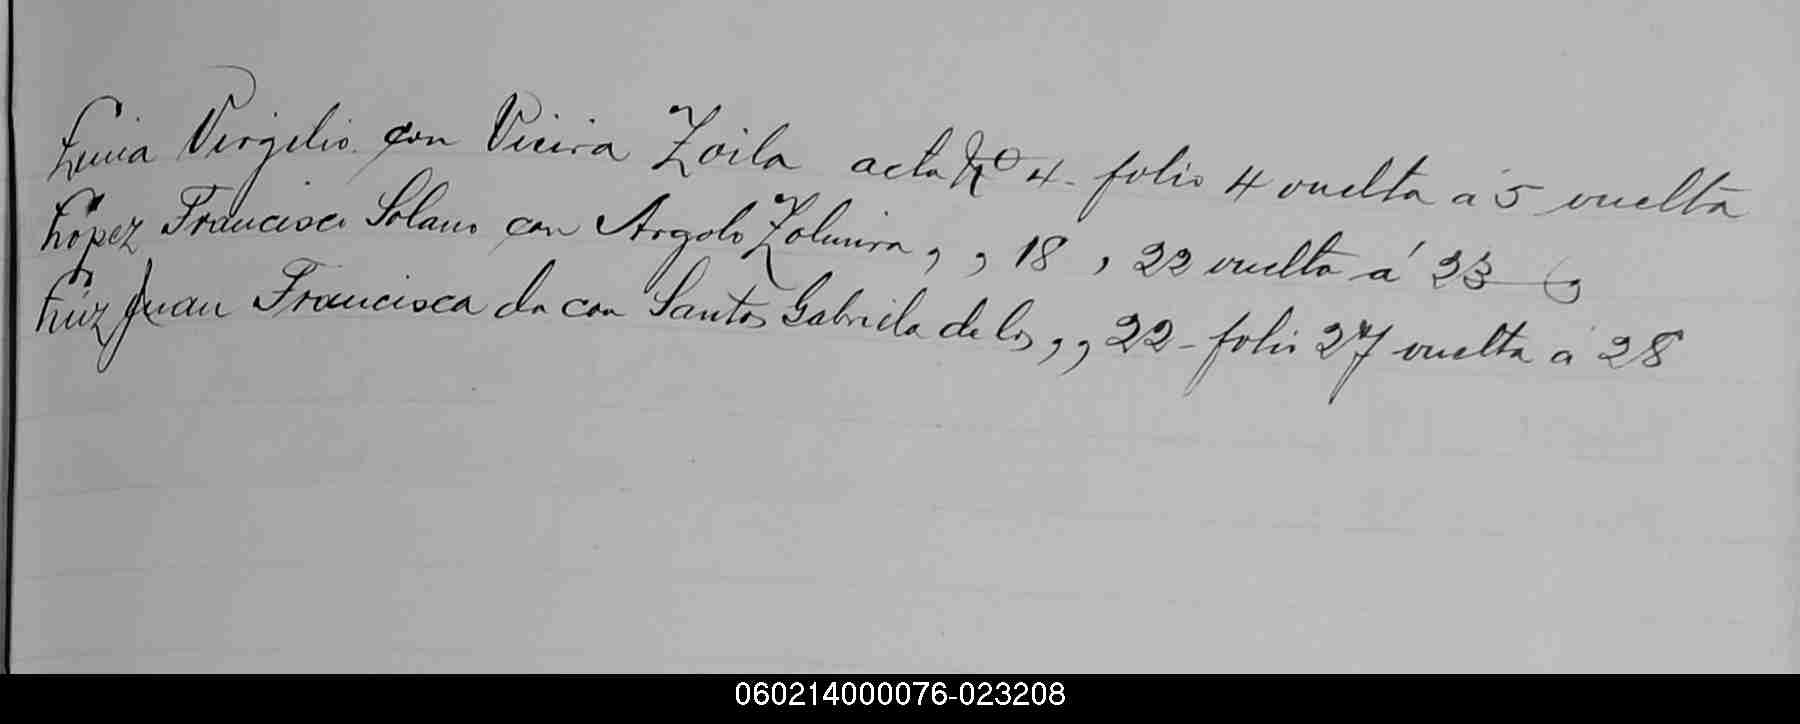 Luna Virgilio con Vieira Zoila acta Nº 4 - folio 4 vuelta a 5 vuelta
López Francisco Solano con Argolo Zolmira , , 18 , 22 vuelta á 23
Luz Juan Francisca da con Santos Gabriela de los , , 22 - folio 27 vuelta a 28
060214000076-023208